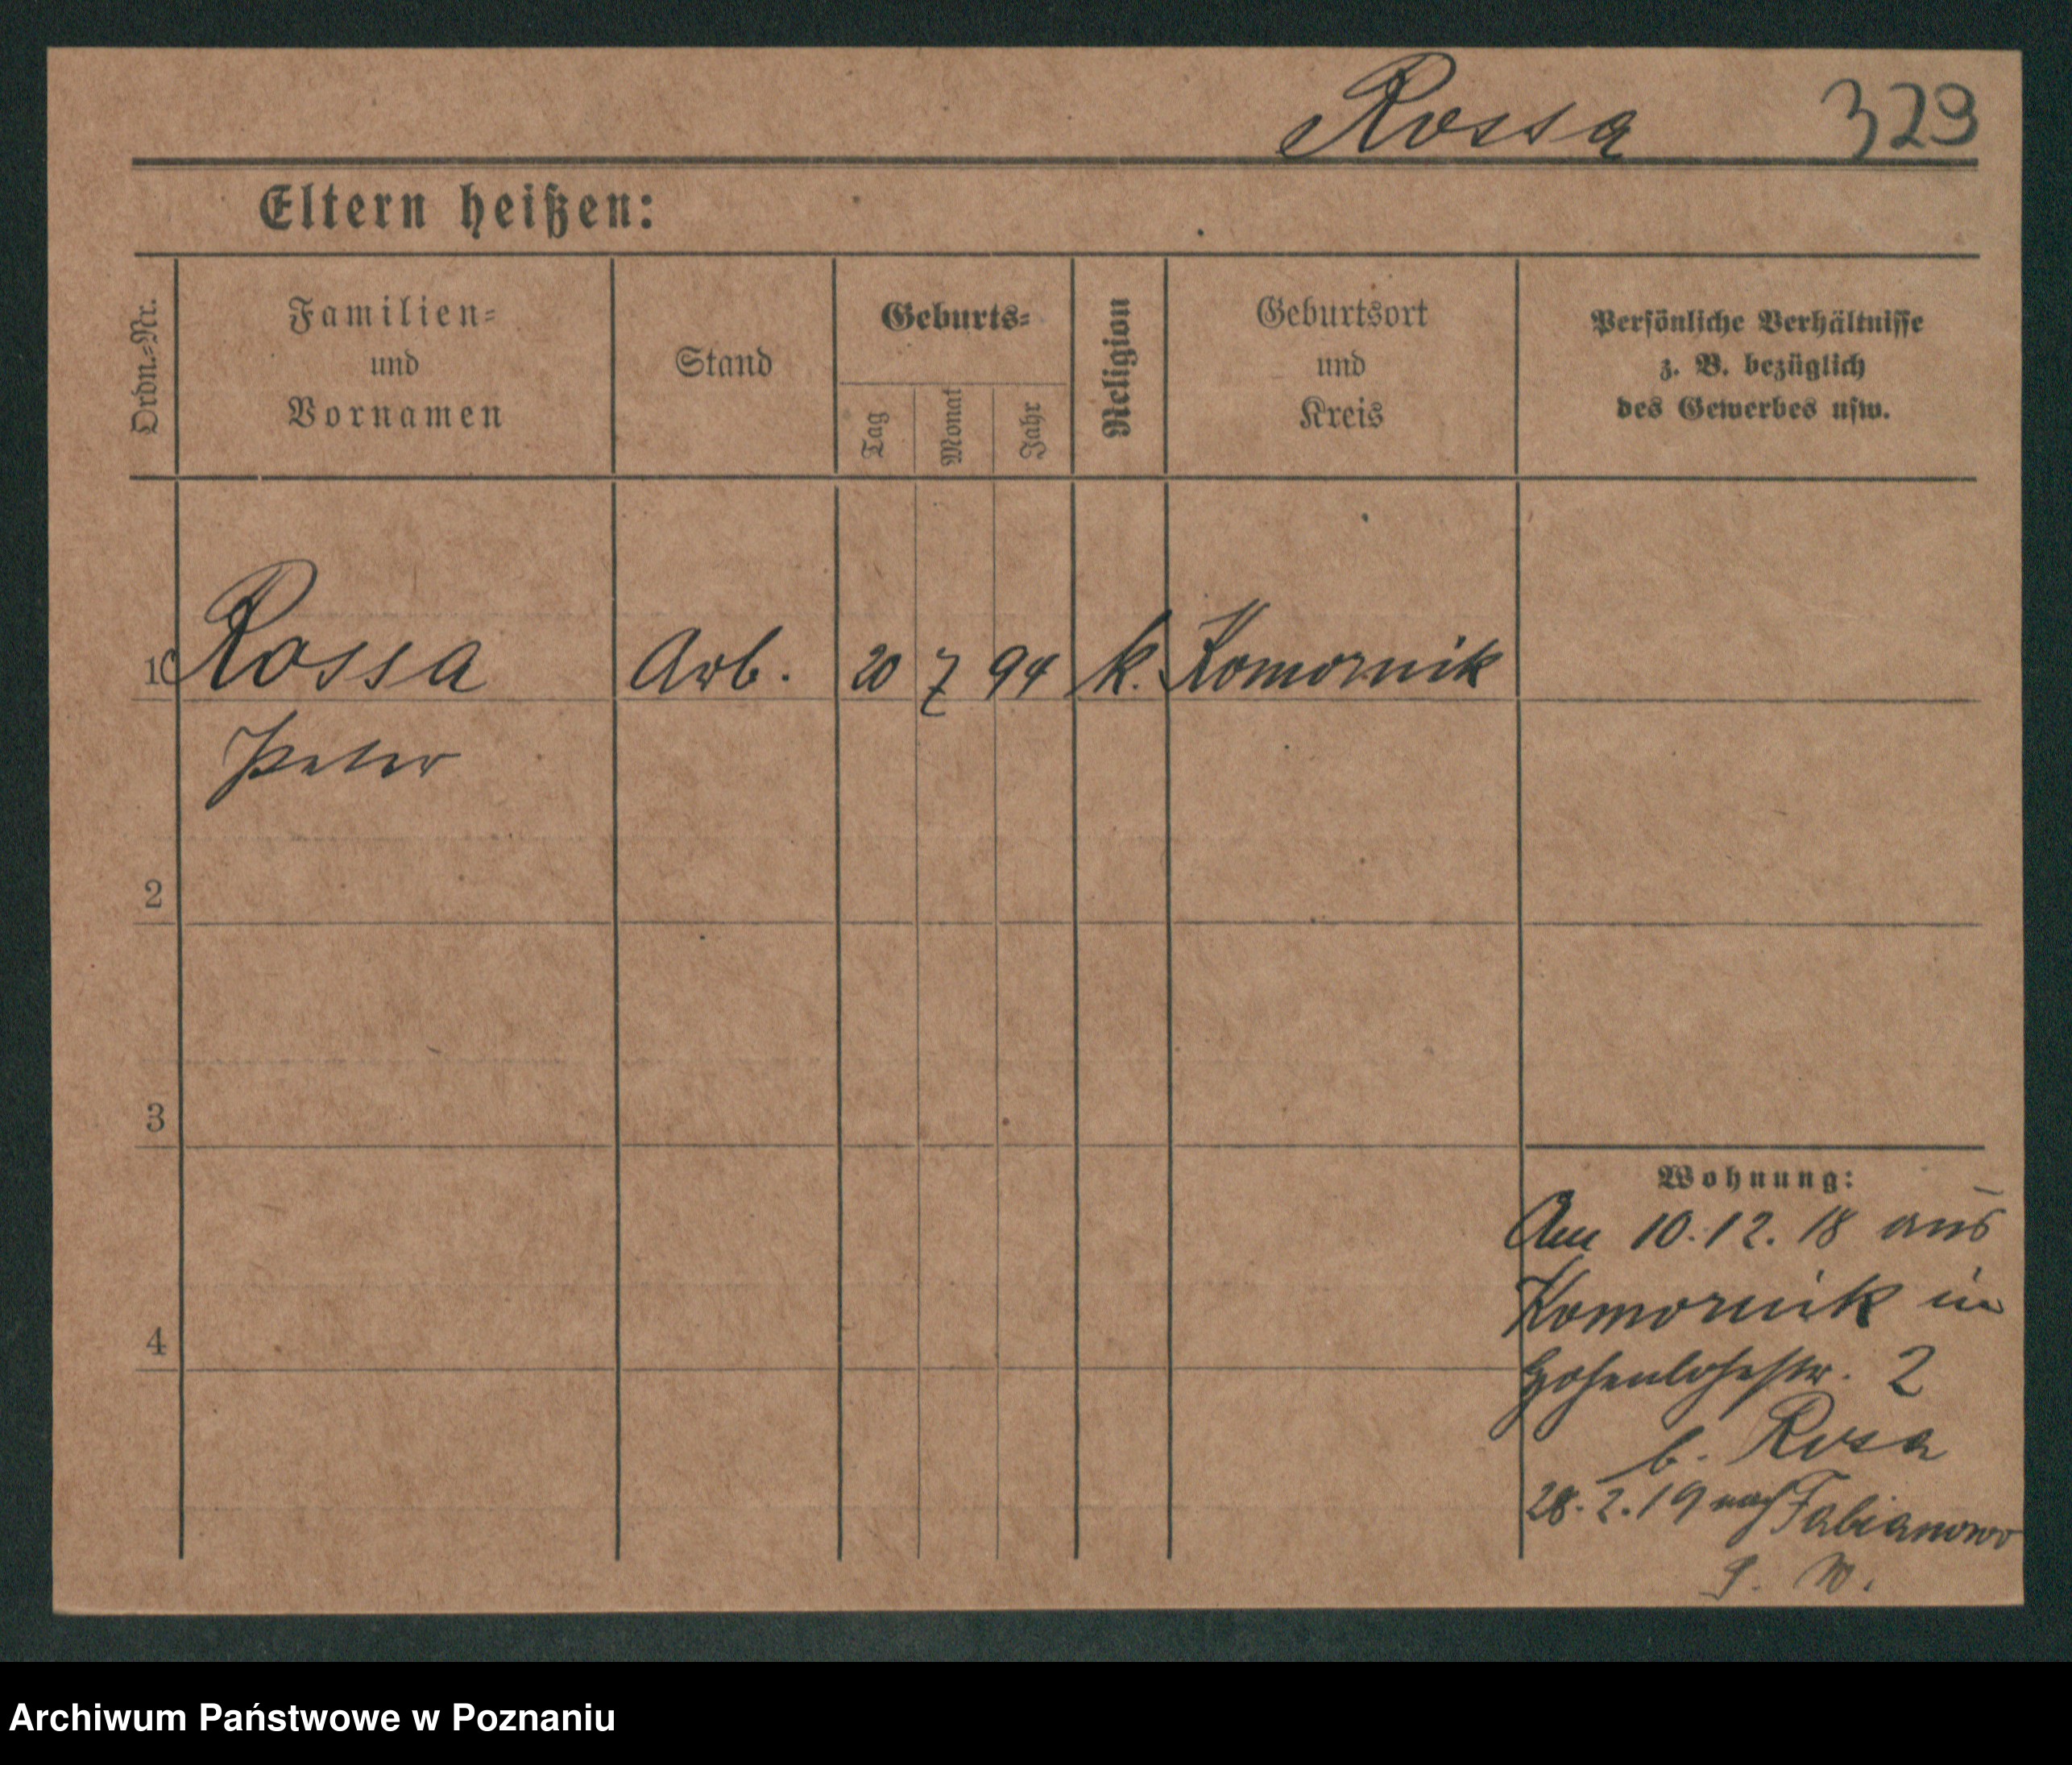 Rossa 329
Eltern heißen:
Ordn.=Nr.
Familien=
und
Vornamen
Stand
Geburts=
Tag
Monat
Jahr
Religion
Geburtsort
und
Kreis
Persönliche Verhältnisse
z. B. bezüglich
des Gewerbes usw.
1 Rossa Arb. 20 7 94 k. Komornik
Peter
2
3
4
Wohnung:
Am 10.12.18 aus
Komornik in
Hohenlohestr. 2
b. Rosa
28.2.19 nach Fabianowo
P. W.
Archiwum Państwowe w Poznaniu